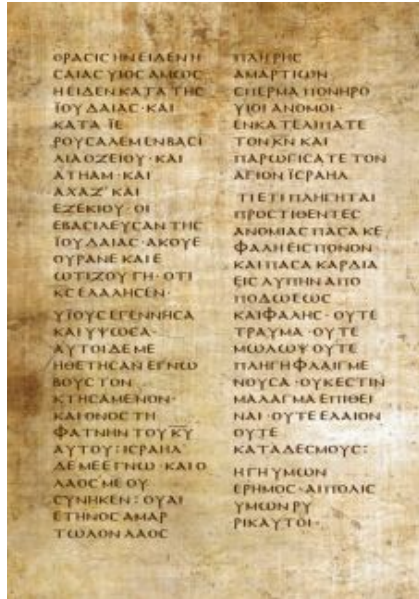 ΟΡΑCΙC ΗΝ ΕΙΔΕΝ Η
CΑΙΑC ΥΙΟC ΑΜΩC
Η ΕΙΔΕΝ ΚΑΤΑ ΤΗC
ΪΟΥΔΑΙΑC · ΚΑΙ
ΚΑΤΑ ΪΕ
ΡΟΥCΑΛΕΜ ΕΝ ΒΑCΙ
ΛΙΑ ΟΖΕΙΟΥ · ΚΑΙ
ΑΤΗΑΜ · ΚΑΙ
ΑΧΑΖ' ΚΑΙ
ΕΖΕΚΙΟΥ · ΟΙ
ΕΒΑCΙΛΕΥCΑΝ ΤΗC
ΪΟΥΔΑΙΑC · ΑΚΟΥΕ
ΟΥΡΑΝΕ ΚΑΙ Ε
ΩΤΙΖΟΥ ΓΗ · ΟΤΙ
ΚC ΕΛΑΛΗCΕΝ ·
ΥΙΟΥC ΕΓΕΝΝΗCΑ
ΚΑΙ ΥΨΩCΑ ·
ΑΥΤΟΙ ΔΕ ΜΕ
ΗΘΕΤΗCΑΝ ΕΓΝΩ
ΒΟΥC ΤΟΝ
ΚΤΗCΑΜΕΝΟΝ ·
ΚΑΙ ΟΝΟC ΤΗ
ΦΑΤΝΗΝ ΤΟΥ Κ̅Υ̅
ΑΥΤΟΥ : ΙCΡΑΗΛ
ΔΕ ΜΕ ΕΓΝΩ · ΚΑΙ Ο
ΛΑΟC ΜΕ ΟΥ
CΥΝΗΚΕΝ : ΟΥΑΙ
ΕΤΗΝΟC ΑΜΑΡ
ΤΩΛΟΝ ΛΑΟC
ΠΛΗΡΗC
ΑΜΑΡΤΙΩΝ
CΠΕΡΜΑ ΠΟΝΗΡΟ
ΥΙΟΙ ΑΝΟΜΟΙ ·
ΕΝΚΑΤΕΛΙΠΑΤΕ
ΤΟΝ Κ̅Ν̅ ΚΑΙ
ΠΑΡΩΓΙCΑΤΕ ΤΟΝ
ΑΓΙΟΝ ΪCΡΑΗΛ
ΤΙ ΕΤΙ ΠΛΗΓΗΤΑΙ
ΠΡΟCΤΙΘΕΝΤΕC
ΑΝΟΜΙΑC ΠΑCΑ ΚΕ
ΦΑΛΗ ΕΙC ΠΟΝΟΝ
ΚΑΙ ΠΑCΑ ΚΑΡΔΙΑ
ΕΙC ΛΥΠΗΝ ΑΠΟ
ΠΟΔΩΕΩC
ΚΑΙ ΦΑΛΗC · ΟΥΤΕ
ΤΡΑΥΜΑ · ΟΥΤΕ
ΜΩΛΩΨ ΟΥΤΕ
ΠΛΗΓΗ ΦΛΑΙΓΜΕ
ΝΟΥCΑ · ΟΥΚ ΕCΤΙΝ
ΜΑΛΑΓΜΑ ΕΠΙΘΕΙ
ΝΑΙ · ΟΥΤΕ ΕΛΑΙΟΝ
ΟΥΤΕ
ΚΑΤΑΔΕCΜΟΥC :
Η ΓΗ ΥΜΩΝ
ΕΡΗΜΟC · ΑΙ ΠΟΛΙC
ΥΜΩΝ ΡΥ
ΡΙΚΑΥΤΟΙ ·